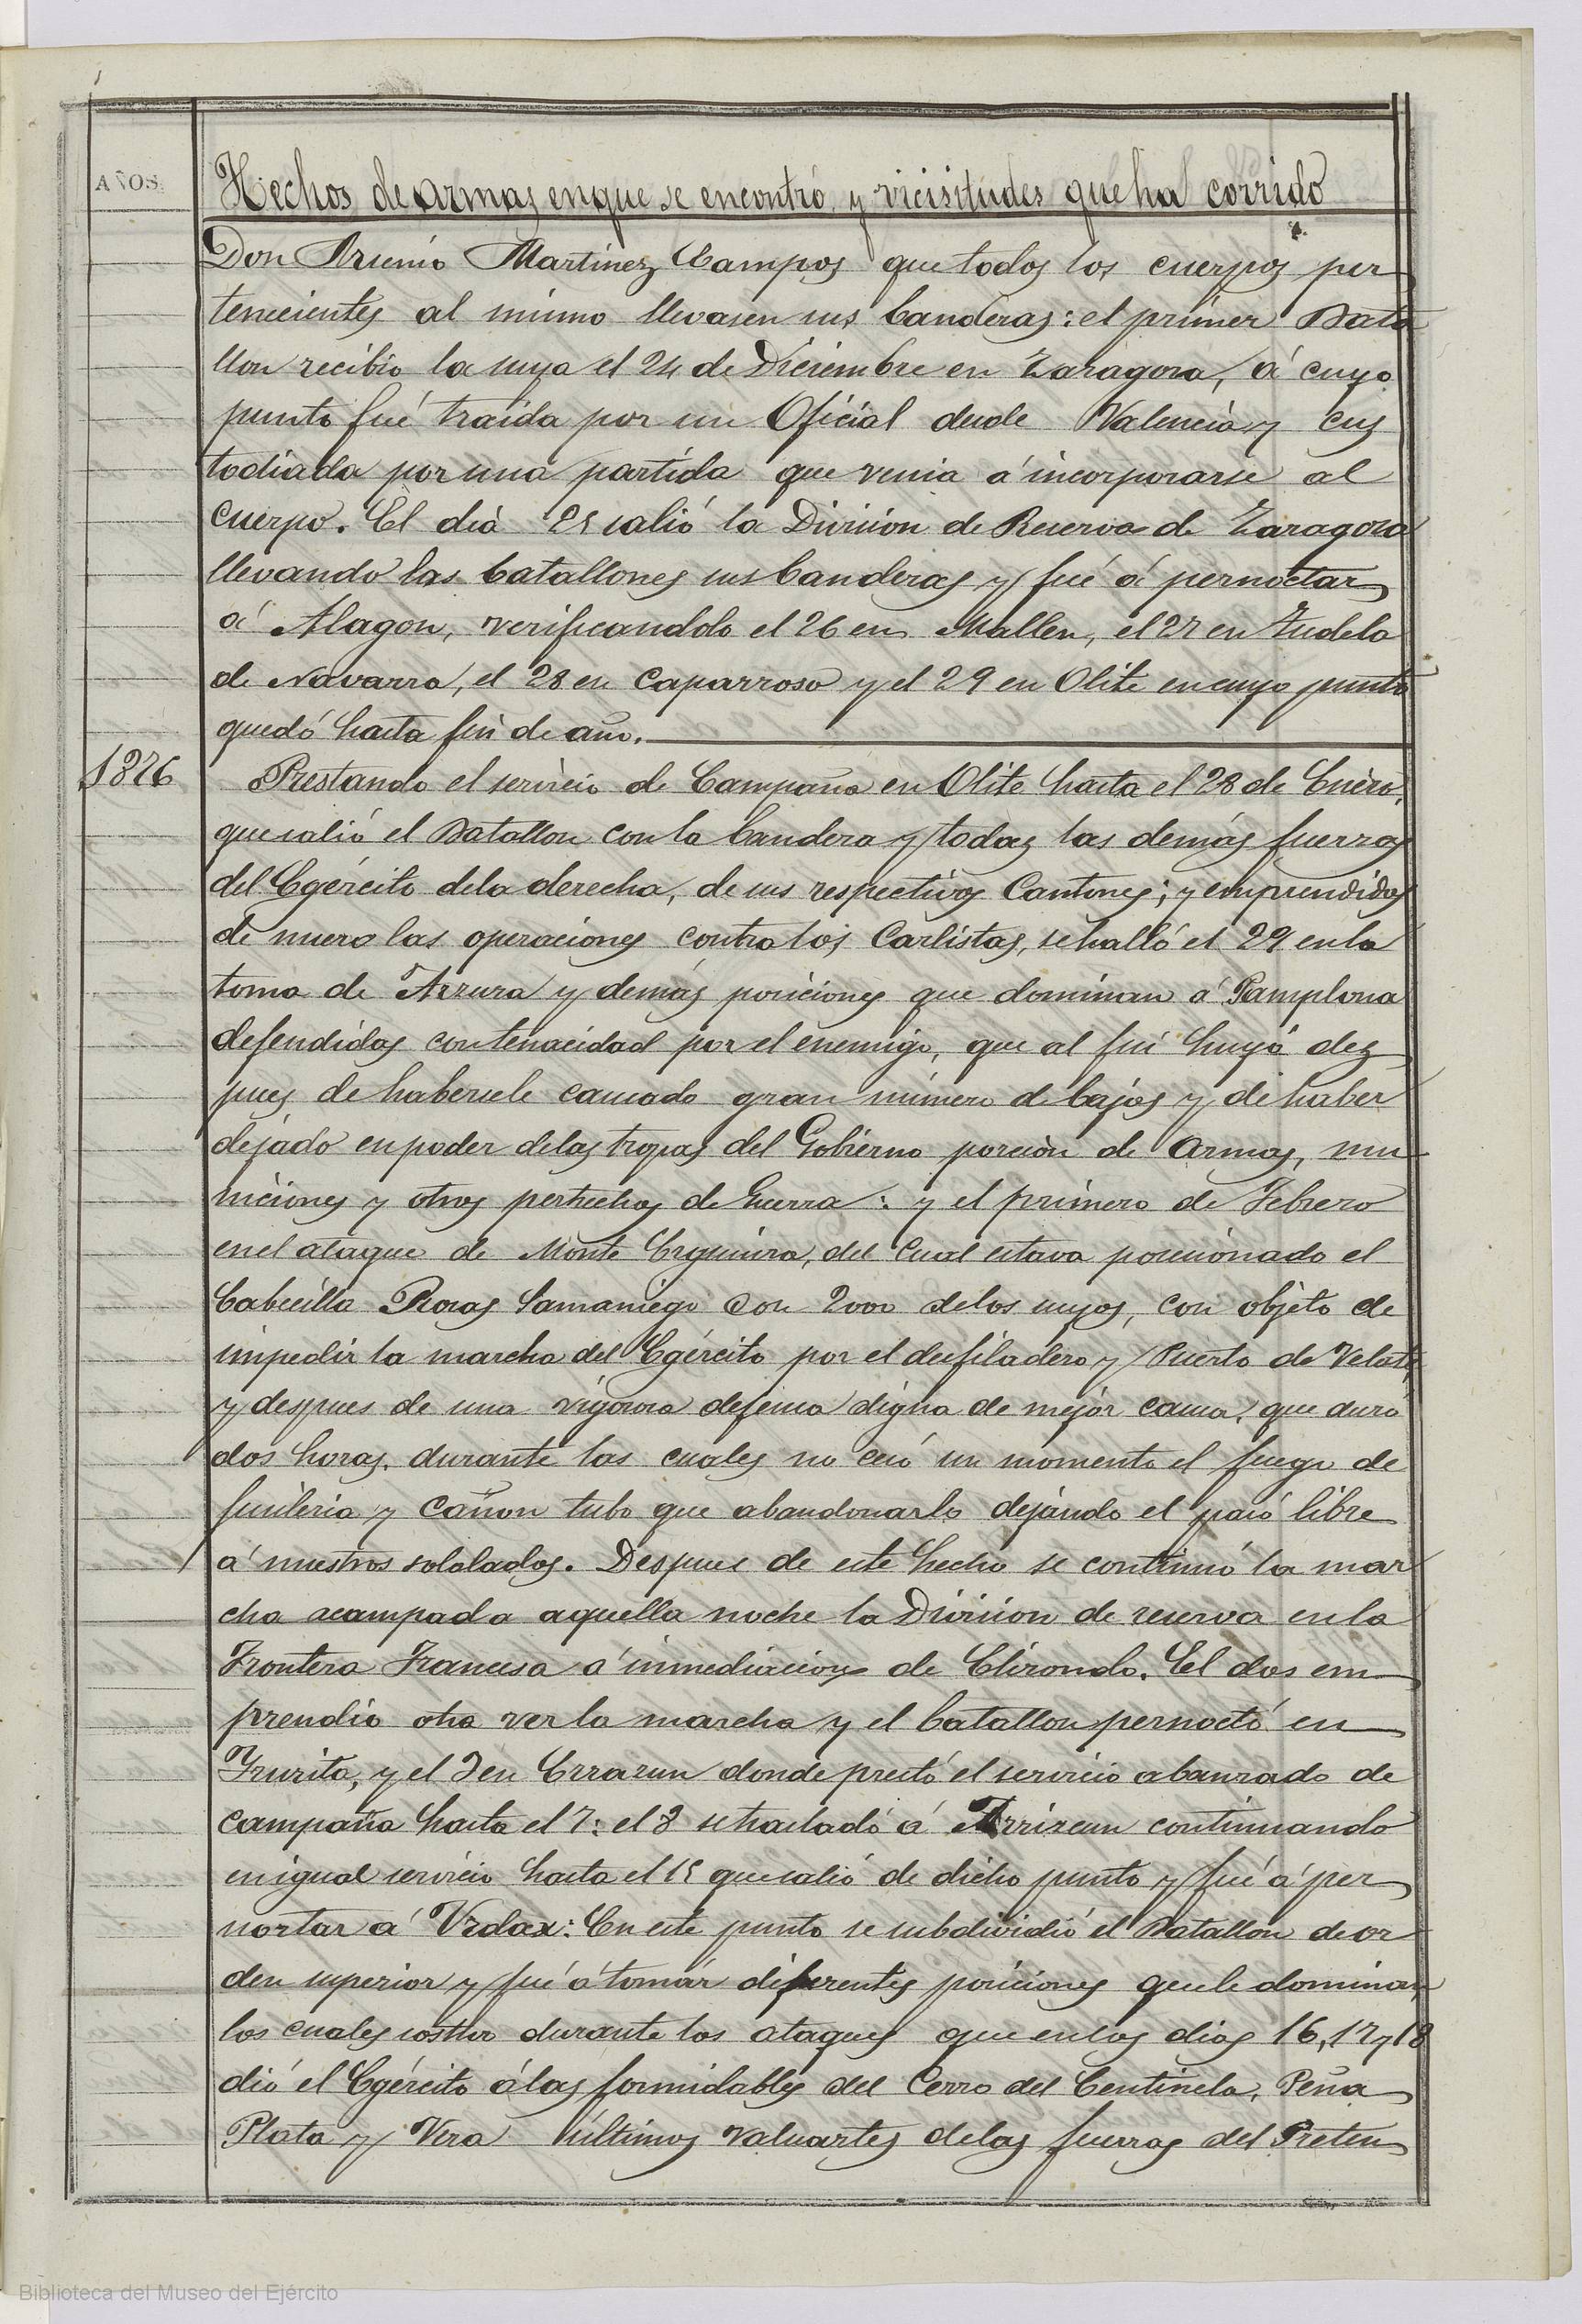 AÑOS.
Hechos de armas en que se encontró y vicisitudes que ha corrido
Don Arsenio Martinez Campos que todos los cuerpos per
tenecientes al mismo llevasen sus banderas: el primer Bata
llon recibio la suya el 24 de Diciembre en Zaragoza, á cuyo
punto fué traida por un Oficial desde Valencia y cus
todiada por una partida que venia á incorporarse al
cuerpo. El dia 25 salió la Division de Reserva de Zaragoza
llevando las batallones sus banderas y fué á pernoctar
á Alagon, verificandolo el 26 en Mallen, el 27 en Tudela
de Navarra, el 28 en Caparroso y el 29 en Olite en cuyo punto
quedó hasta fin de año.
1876 Prestando el servicio de Campaña en Olite hasta el 28 de Enero,
que salió el Batallon con la bandera y todas las demás fuerzas
del Egército de la derecha, de sus respectivos Cantones; y emprendidas
de nuevo las operaciones contra los Carlistas, se halló el 29 en la
toma de Arzura y demás posiciones que dominan á Pamplona
defendidas con tenacidad por el enemigo, que al fin huyó des
pues de habersele causado gran número de bajas y de haber
dejado en poder de las tropas del Gobierno porcion de armas, mu
niciones y otros pertrechos de Guerra: y el primero de Febrero
en el ataque de Monte Erquinza, del cual estava posicionado el
Cabecilla Rosas Samaniego con 2000 de los suyos, con objeto de
impedir la marcha del Egército por el desfiladero y Puerto de Velate,
y despues de una vigorosa defensa digna de mejor causa, que duró
dos horas, durante las cuales no cesó un momento el fuego de
fusileria y cañon tubo que abandonarlo dejando el pasó libre
á nuestros soldados. Despues de este hecho se continuó la mar
cha acampada aquella noche la Division de reserva en la
Frontera Francesa á inmediaciones de Elizondo. El dos em
prendio otra vez la marcha y el batallon pernoctó en
Irurita, y el 3 en Errazun donde prestó el servicio abanzado de
campaña hasta el 7: el 8 se trasladó á Arrizcun continuando
en igual servicio hasta el 15 que salió de dicho punto y fué á per
noctar á Urdax: En este punto se subdividió el Batallon de or
den superior y fué á tomar diferentes posiciones que le dominan,
los cuales sostuvo durante los ataques que en los dias 16, 17 y 18
dió el Egército á las formidables del Cerro del Centinela, Peña
Plata y Vera últimos valuartes de las fuerzas del Preten
Biblioteca del Museo del Ejército